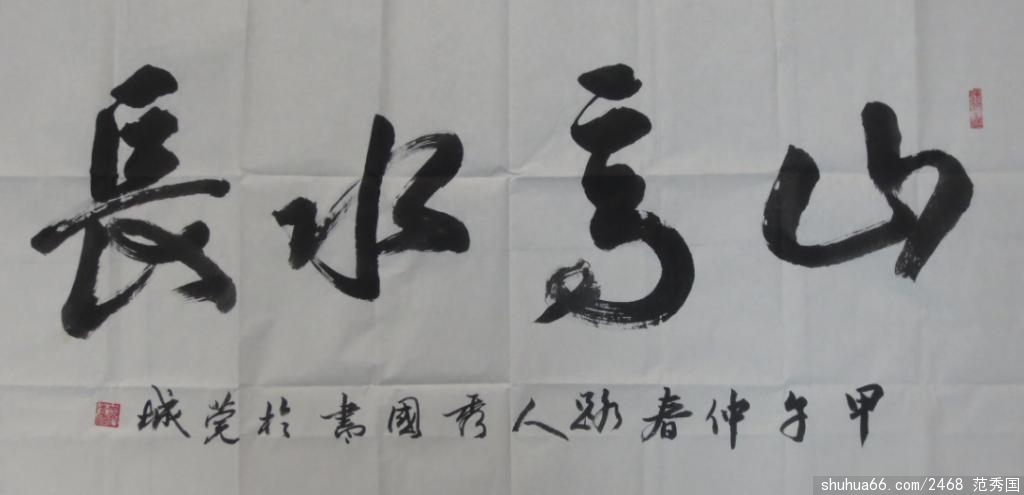 山高水長
甲午仲春路人秀國書於莞城
shuhua66.com/2468 范秀国